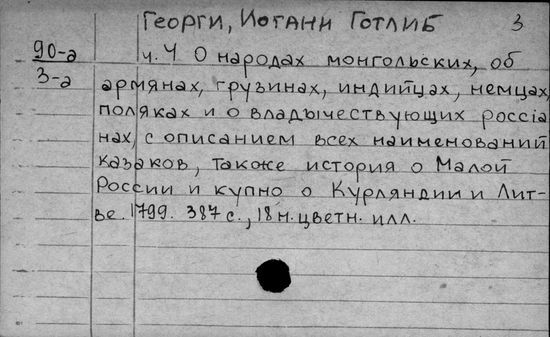 Георги, Иогани Готлиб 3
90-а ч. 4 О народах монгольских, об
3-а армянах, грузинах, индийцах, немцах,
поляках и о владычествующих россiа
нах, с описанием всех наименований
казаков, также история о Малой
России и купно о Курляндии и Лит-
ве. 1799. 387 с., 18 н. цветн. илл.